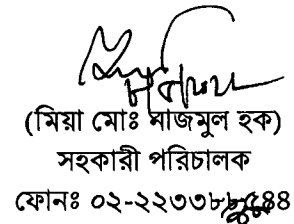 (মিয়া মোঃ নাজমুল হক)
সহকারী পরিচালক
ফোনঃ ০২-২২৩৩৮৮৫৪৪